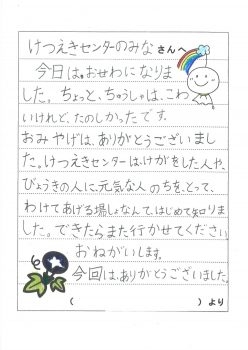 けつえきセンターのみなさんへ
今日は。おせわになりま
した。ちょっと、ちゅうしゃは、こわ
いけれど、たのしかったです。
おみやげは、ありがとうございまし
た。けつえきセンターは、けがをした人や、
びょうきの人に元気な人のちを、とって、
わけてあげる場しょなんて、はじめて知りま
した。できたらまた行かせてください
おねがいします。
今回は、ありがとうございました。
( )より